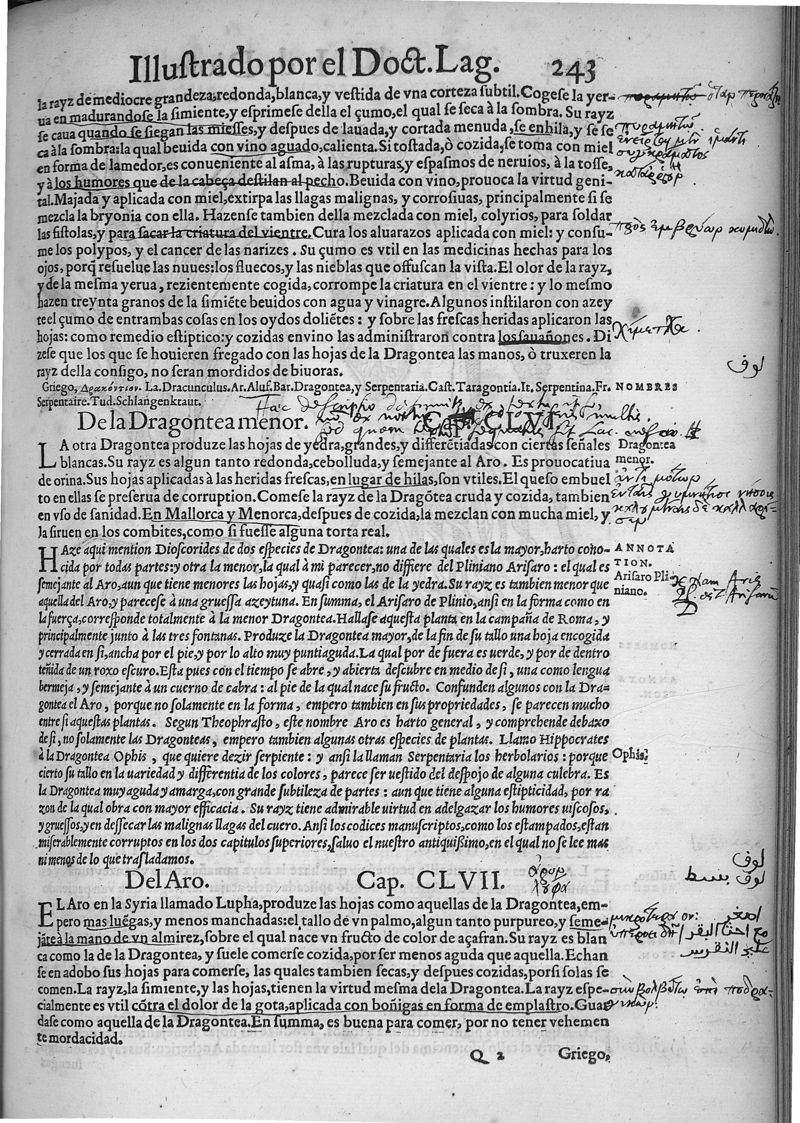 Illustrado por el Doct. Lag. 243
la rayz de mediocre grandeza, redonda, blanca, y vestida de vna corteza subtil. Cogese la yer-
ua en madurandose la simiente, y esprimese della el çumo, el qual se seca à la sombra. Su rayz
se caua quando se siegan las miesses, y despues de lauada, y cortada menuda, se enhila, y se se
ca à la sombra: la qual beuida con vino aguado, calienta. Si tostada, ò cozida, se toma con miel
en forma de lamedor, es conueniente al asma, à las rupturas, y espasmos de neruios, à la tosse,
y à los humores que de la cabeça destilan al pecho. Beuida con vino, prouoca la virtud geni-
tal. Majada y aplicada con miel, extirpa las llagas malignas, y corrosiuas, principalmente si se
mezcla la bryonia con ella. Hazense tambien della mezclada con miel, colyrios, para soldar
las fistolas, y para sacar la criatura del vientre. Cura los aluarazos aplicada con miel: y consu-
me los polypos, y el cancer de las narizes. Su çumo es vtil en las medicinas hechas para los
ojos, porq̃ resuelue las nuues: los fluecos, y las nieblas que offuscan la vista. El olor de la rayz,
y de la mesma yerua, rezientemente cogida, corrompe la criatura en el vientre: y lo mesmo
hazen treynta granos de la simiẽte beuidos con agua y vinagre. Algunos instilaron con azey
te el çumo de entrambas cosas en los oydos doliẽtes: y sobre las frescas heridas aplicaron las
hojas: como remedio estiptico: y cozidas en vino las administraron contra los sauañones. Di
zese que los que se houieren fregado con las hojas de la Dragontea las manos, ò truxeren la
rayz della consigo, no seran mordidos de biuoras.
لوف
Griego, Δρακόντιον. La. Dracunculus. Ar. Aluf. Bar. Dragontea, y Serpentaria. Cast. Taragontia. It. Serpentina. Fr.
NOMBRES
Serpentaire. Tud. Schlangenkraut.
De la Dragontea menor. Cap. CLVI.
LA otra Dragontea produze las hojas de yedra, grandes, y differẽtiadas con ciertas señales
Dragontea
blancas. Su rayz es algun tanto redonda, cebolluda, y semejante al Aro. Es prouocatiua
menor.
de orina. Sus hojas aplicadas à las heridas frescas, en lugar de hilas, son vtiles. El queso embuel
to en ellas se preserua de corruption. Comese la rayz de la Dragõtea cruda y cozida, tambien
en vso de sanidad. En Mallorca y Menorca, despues de cozida, la mezclan con mucha miel, y
la siruen en los combites, como si fuesse alguna torta real.
HAze aqui mention Dioscorides de dos especies de Dragontea: una de las quales es la mayor, harto cono-
ANNOTA
cida por todas partes: y otra la menor, la qual à mi parecer, no differe del Pliniano Arisaro: el qual es
TION.
semejante al Aro, aun que tiene menores las hojas, y quasi como las de la yedra. Su rayz es tambien menor que
Arisaro Pli-
aquella del Aro, y parecese à una gruessa azeytuna. En summa, el Arisaro de Plinio, ansi en la forma como en
niano.
la fuerça, corresponde totalmente à la menor Dragontea. Hallase aquesta planta en la campaña de Roma, y
principalmente junto à las tres fontanas. Produze la Dragontea mayor, de la fin de su tallo una hoja encogida
y cerrada en si, ancha por el pie, y por lo alto muy puntiaguda. La qual por de fuera es uerde, y por de dentro
teñida de un roxo escuro. Esta pues con el tiempo se abre, y abierta descubre en medio de si, una como lengua
bermeja, y semejante à un cuerno de cabra: al pie de la qual nace su fructo. Confunden algunos con la Dra-
gontea el Aro, porque no solamente en la forma, empero tambien en sus propriedades, se parecen mucho
entre si aquestas plantas. Segun Theophrasto, este nombre Aro es harto general, y comprehende debaxo
de si, no solamente las Dragonteas, empero tambien algunas otras especies de plantas. Llamo Hippocrates
à la Dragontea Ophis, que quiere dezir serpiente: y ansi la llaman Serpentaria los herbolarios: porque
Ophis.
cierto su tallo en la uariedad y differentia de los colores, parece ser uestido del despojo de alguna culebra. Es
la Dragontea muy aguda y amarga, con grande subtileza de partes: aun que tiene alguna estipticidad, por ra
zon de la qual obra con mayor efficacia. Su rayz tiene admirable uirtud en adelgazar los humores uiscosos,
y gruessos, y en dessecar las malignas llagas del cuero. Ansi los codices manuscriptos, como los estampados, estan
miserablemente corruptos en los dos capitulos superiores, saluo el nuestro antiquißimo, en el qual no se lee mas
ni menos de lo que trasladamos.
لوف
لوف بسط
Del Aro. Cap. CLVII.
EL Aro en la Syria llamado Lupha, produze las hojas como aquellas de la Dragontea, em-
pero mas luẽgas, y menos manchadas: el tallo de vn palmo, algun tanto purpureo, y seme-
jãte à la mano de vn almirez, sobre el qual nace vn fructo de color de açafran. Su rayz es blan
ca como la de la Dragontea, y suele comerse cozida, por ser menos aguda que aquella. Echan
se en adobo sus hojas para comerse, las quales tambien secas, y despues cozidas, por si solas se
comen. La rayz, la simiente, y las hojas, tienen la virtud mesma dela Dragontea. La rayz espe-
cialmente es vtil cõtra el dolor de la gota, aplicada con boñigas en forma de emplastro. Guar
dase como aquella de la Dragontea. En summa, es buena para comer, por no tener vehemen
te mordacidad.
Q 2 Griego,